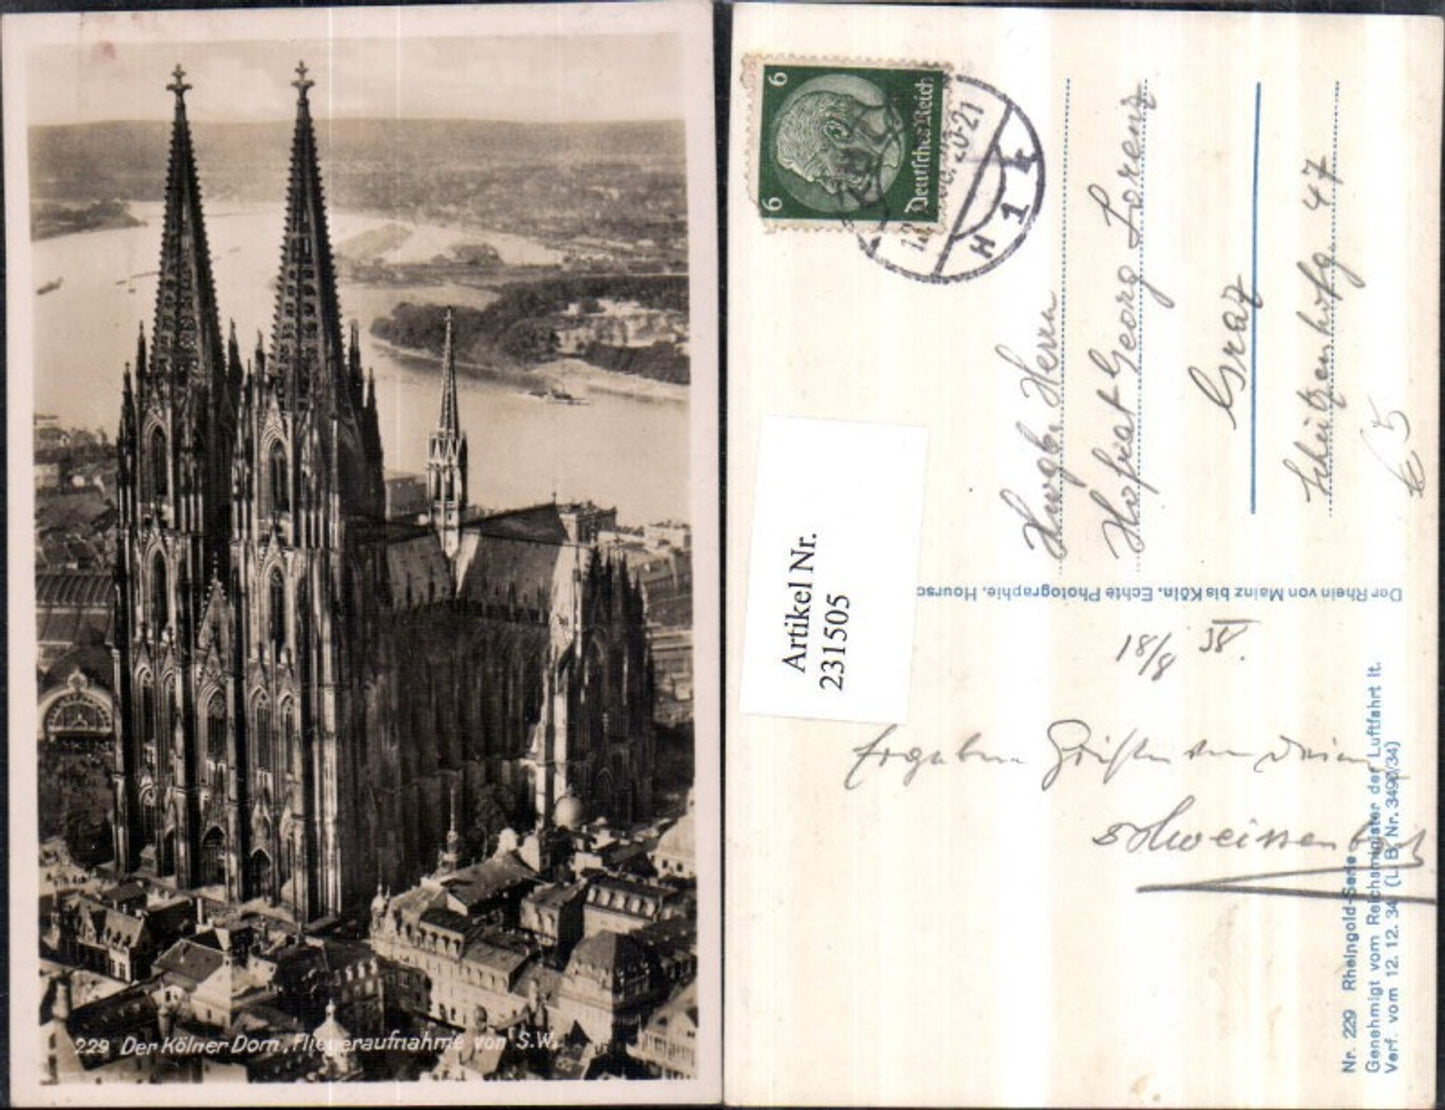 229 Der Kölner Dom, Fliegeraufnahme von S.W.
6
6
Deutsches Reich
20-21
H 1 k
Herrn
Hofrat Georg Lorenz
Graz
47
€ 5
Artikel Nr.
231505
Der Rhein von Mainz bis Köln. Echte Photographie.
18/8 38.
Nr. 229 Rheingold-Serie
Genehmigt vom Reichsminister der Luftfahrt lt.
Verf. vom 12. 12. 34 (L. B. Nr. 3490/34)